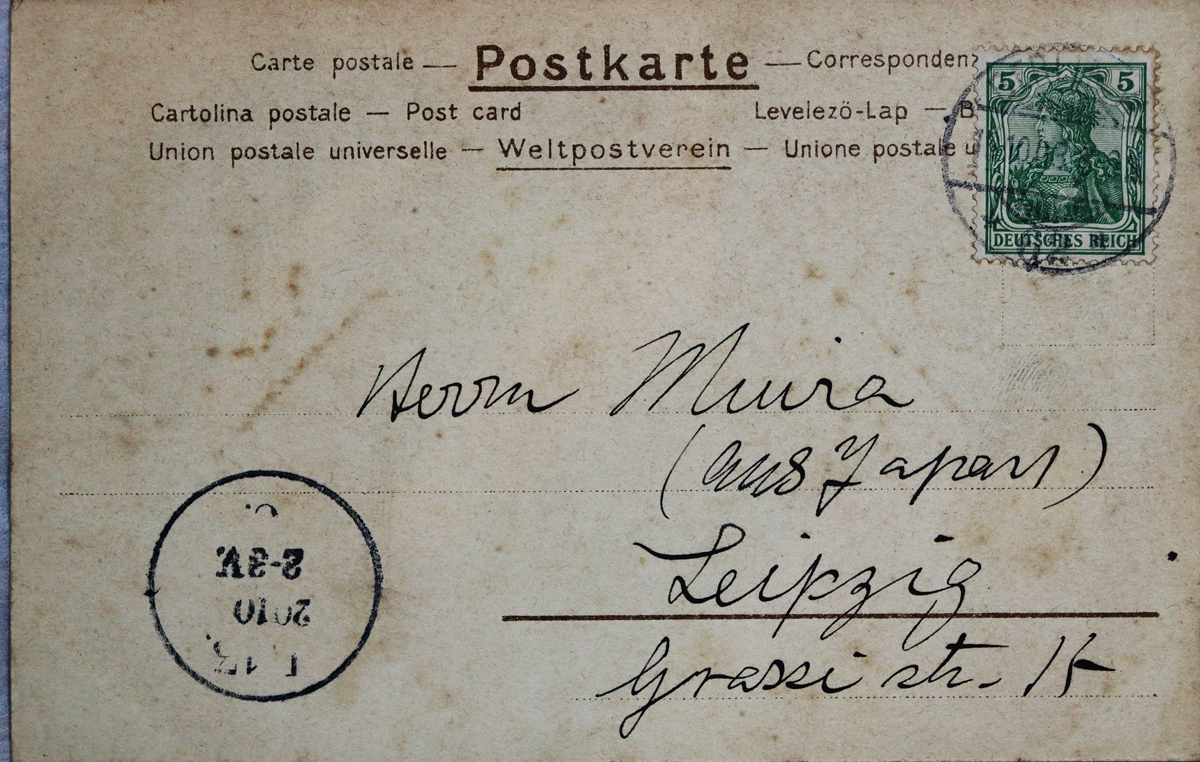 Carte postale — Postkarte — Correspondenz
Cartolina postale — Post card Levelezö-Lap — B
Union postale universelle — Weltpostverein — Unione postale u
5 5
DEUTSCHES REICH
Herrn Miura
(aus Japan)
Leipzig
Grassi str. 15
C.
2-3V.
2010